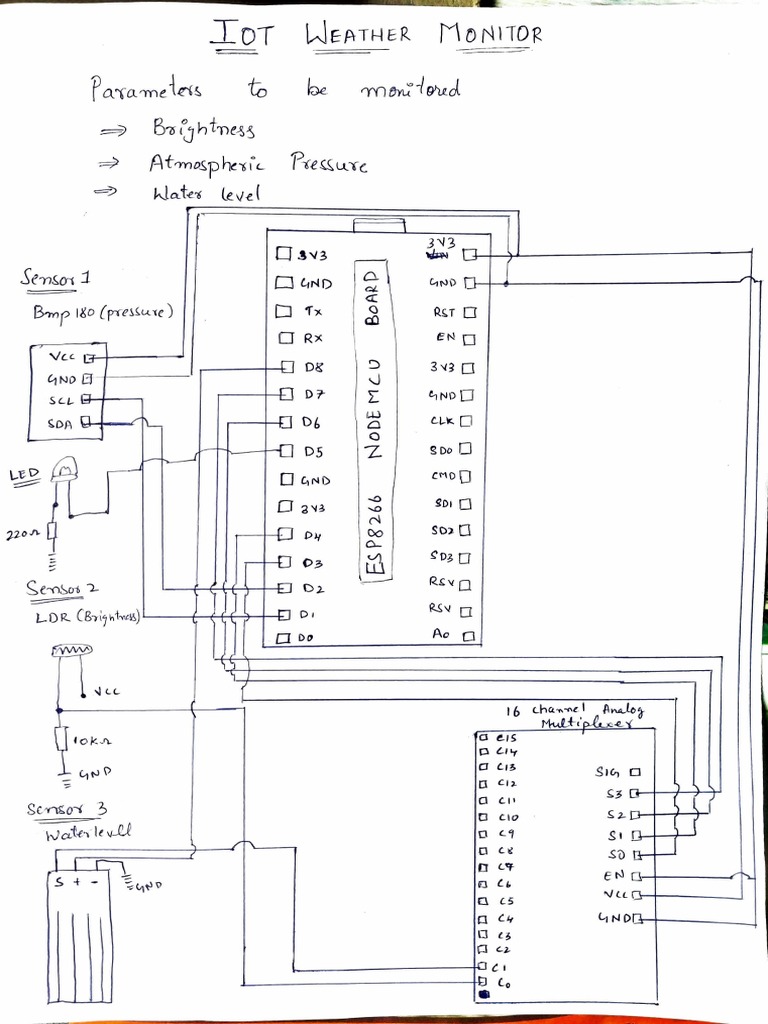 IOT WEATHER MONITOR
Parameters to be monitored
⇒ Brightness
⇒ Atmospheric Pressure
⇒ Water level
Sensor 1
Bmp 180 (pressure)
VCC
GND
SCL
SDA
LED
220Ω
Sensor 2
LDR (Brightness)
VCC
10KΩ
GND
Sensor 3
Water level
S + -
GND
3V3
GND
Tx
Rx
D8
D7
D6
D5
GND
3V3
D4
D3
D2
D1
D0
ESP8266 NODEMCU BOARD
3V3
GND
RST
EN
3V3
GND
CLK
SD0
CMD
SD1
SD2
SD3
RSV
RSV
A0
16 channel Analog
Multiplexer
C15
C14
C13
C12
C11
C10
C9
C8
C7
C6
C5
C4
C3
C2
C1
C0
SIG
S3
S2
S1
S0
EN
VCC
GND